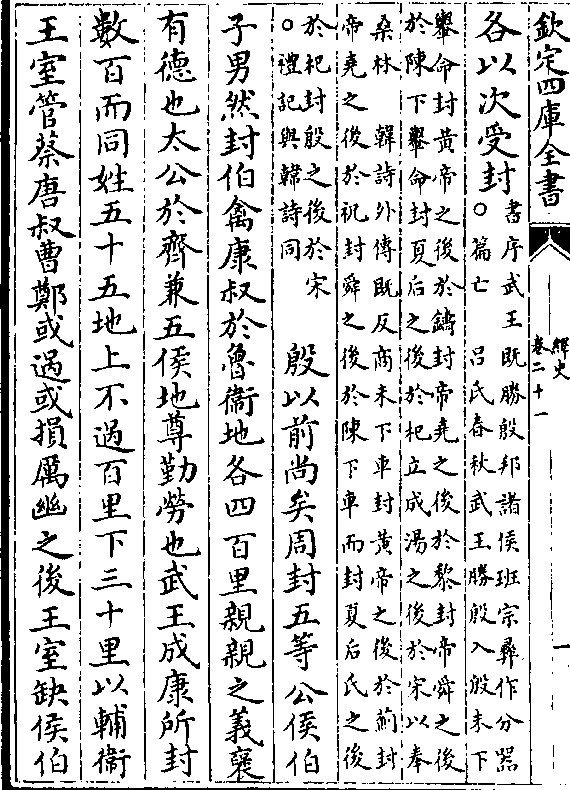 欽定四庫全書
繹史
卷二十一
一
各以次受封○
書序武王既勝殷邦諸侯班宗彞作分器
篇亡 吕氏春秋武王勝殷入殷未下
轝命封黄帝之後於鑄封帝堯之後於黎封帝舜之後
於陳下轝命封夏后之後於杞立成湯之後於宋以奉
桑林 韓詩外傳既反商未下車封黄帝之後於薊封
帝堯之後於祝封舜之後於陳下車而封夏后氏之後
於杞封殷之後於宋
○禮記與韓詩同
殷以前尚矣周封五等公侯伯
子男然封伯禽康叔於魯衞地各四百里親親之義褒
有德也太公於齊兼五侯地尊勤勞也武王成康所封
數百而同姓五十五地上不過百里下三十里以輔衞
王室管蔡唐叔曹鄭或過或損厲幽之後王室缺侯伯